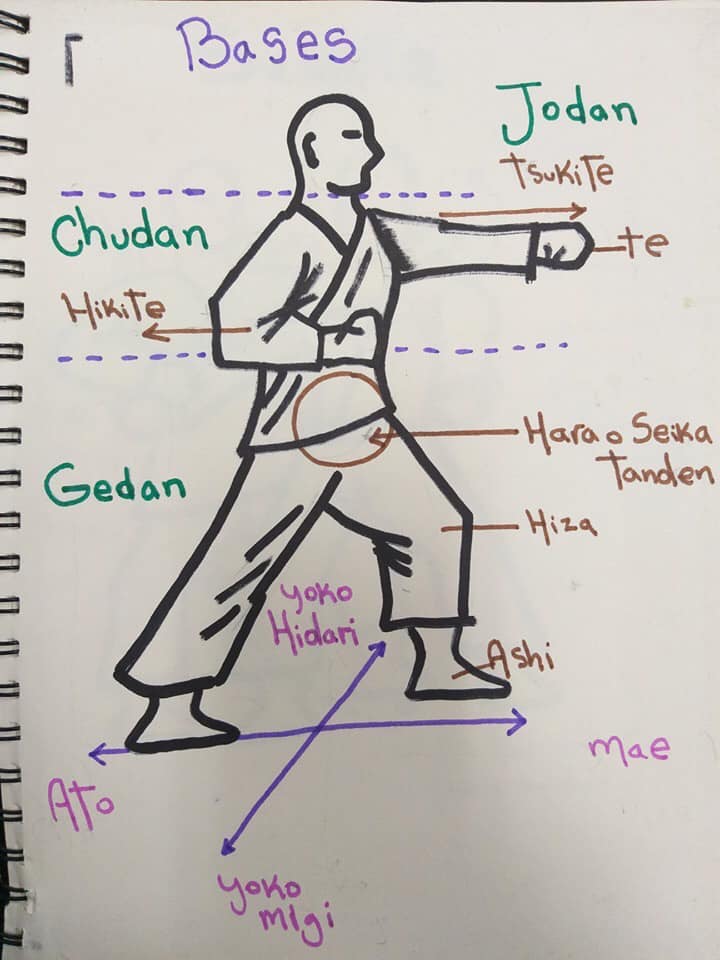 Bases
Jodan
Tsukite
Chudan
te
Hikite
Hara o Seika
Tanden
Gedan
Hiza
yoko
Hidari
Ashi
mae
Ato
yoko
migi